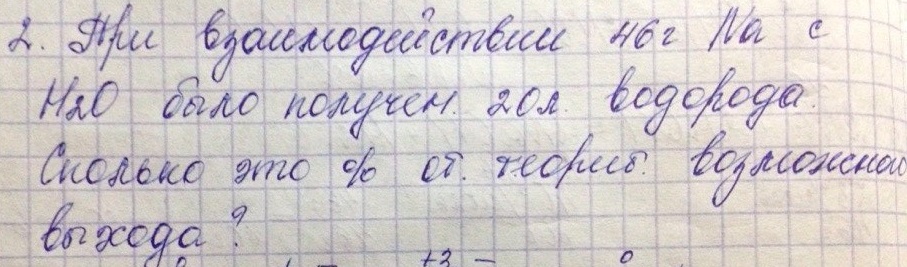 2. При взаимодействии 46г Na с
H2O было получен. 20л. водорода.
Сколько это % от. теорит. возможного
выхода?